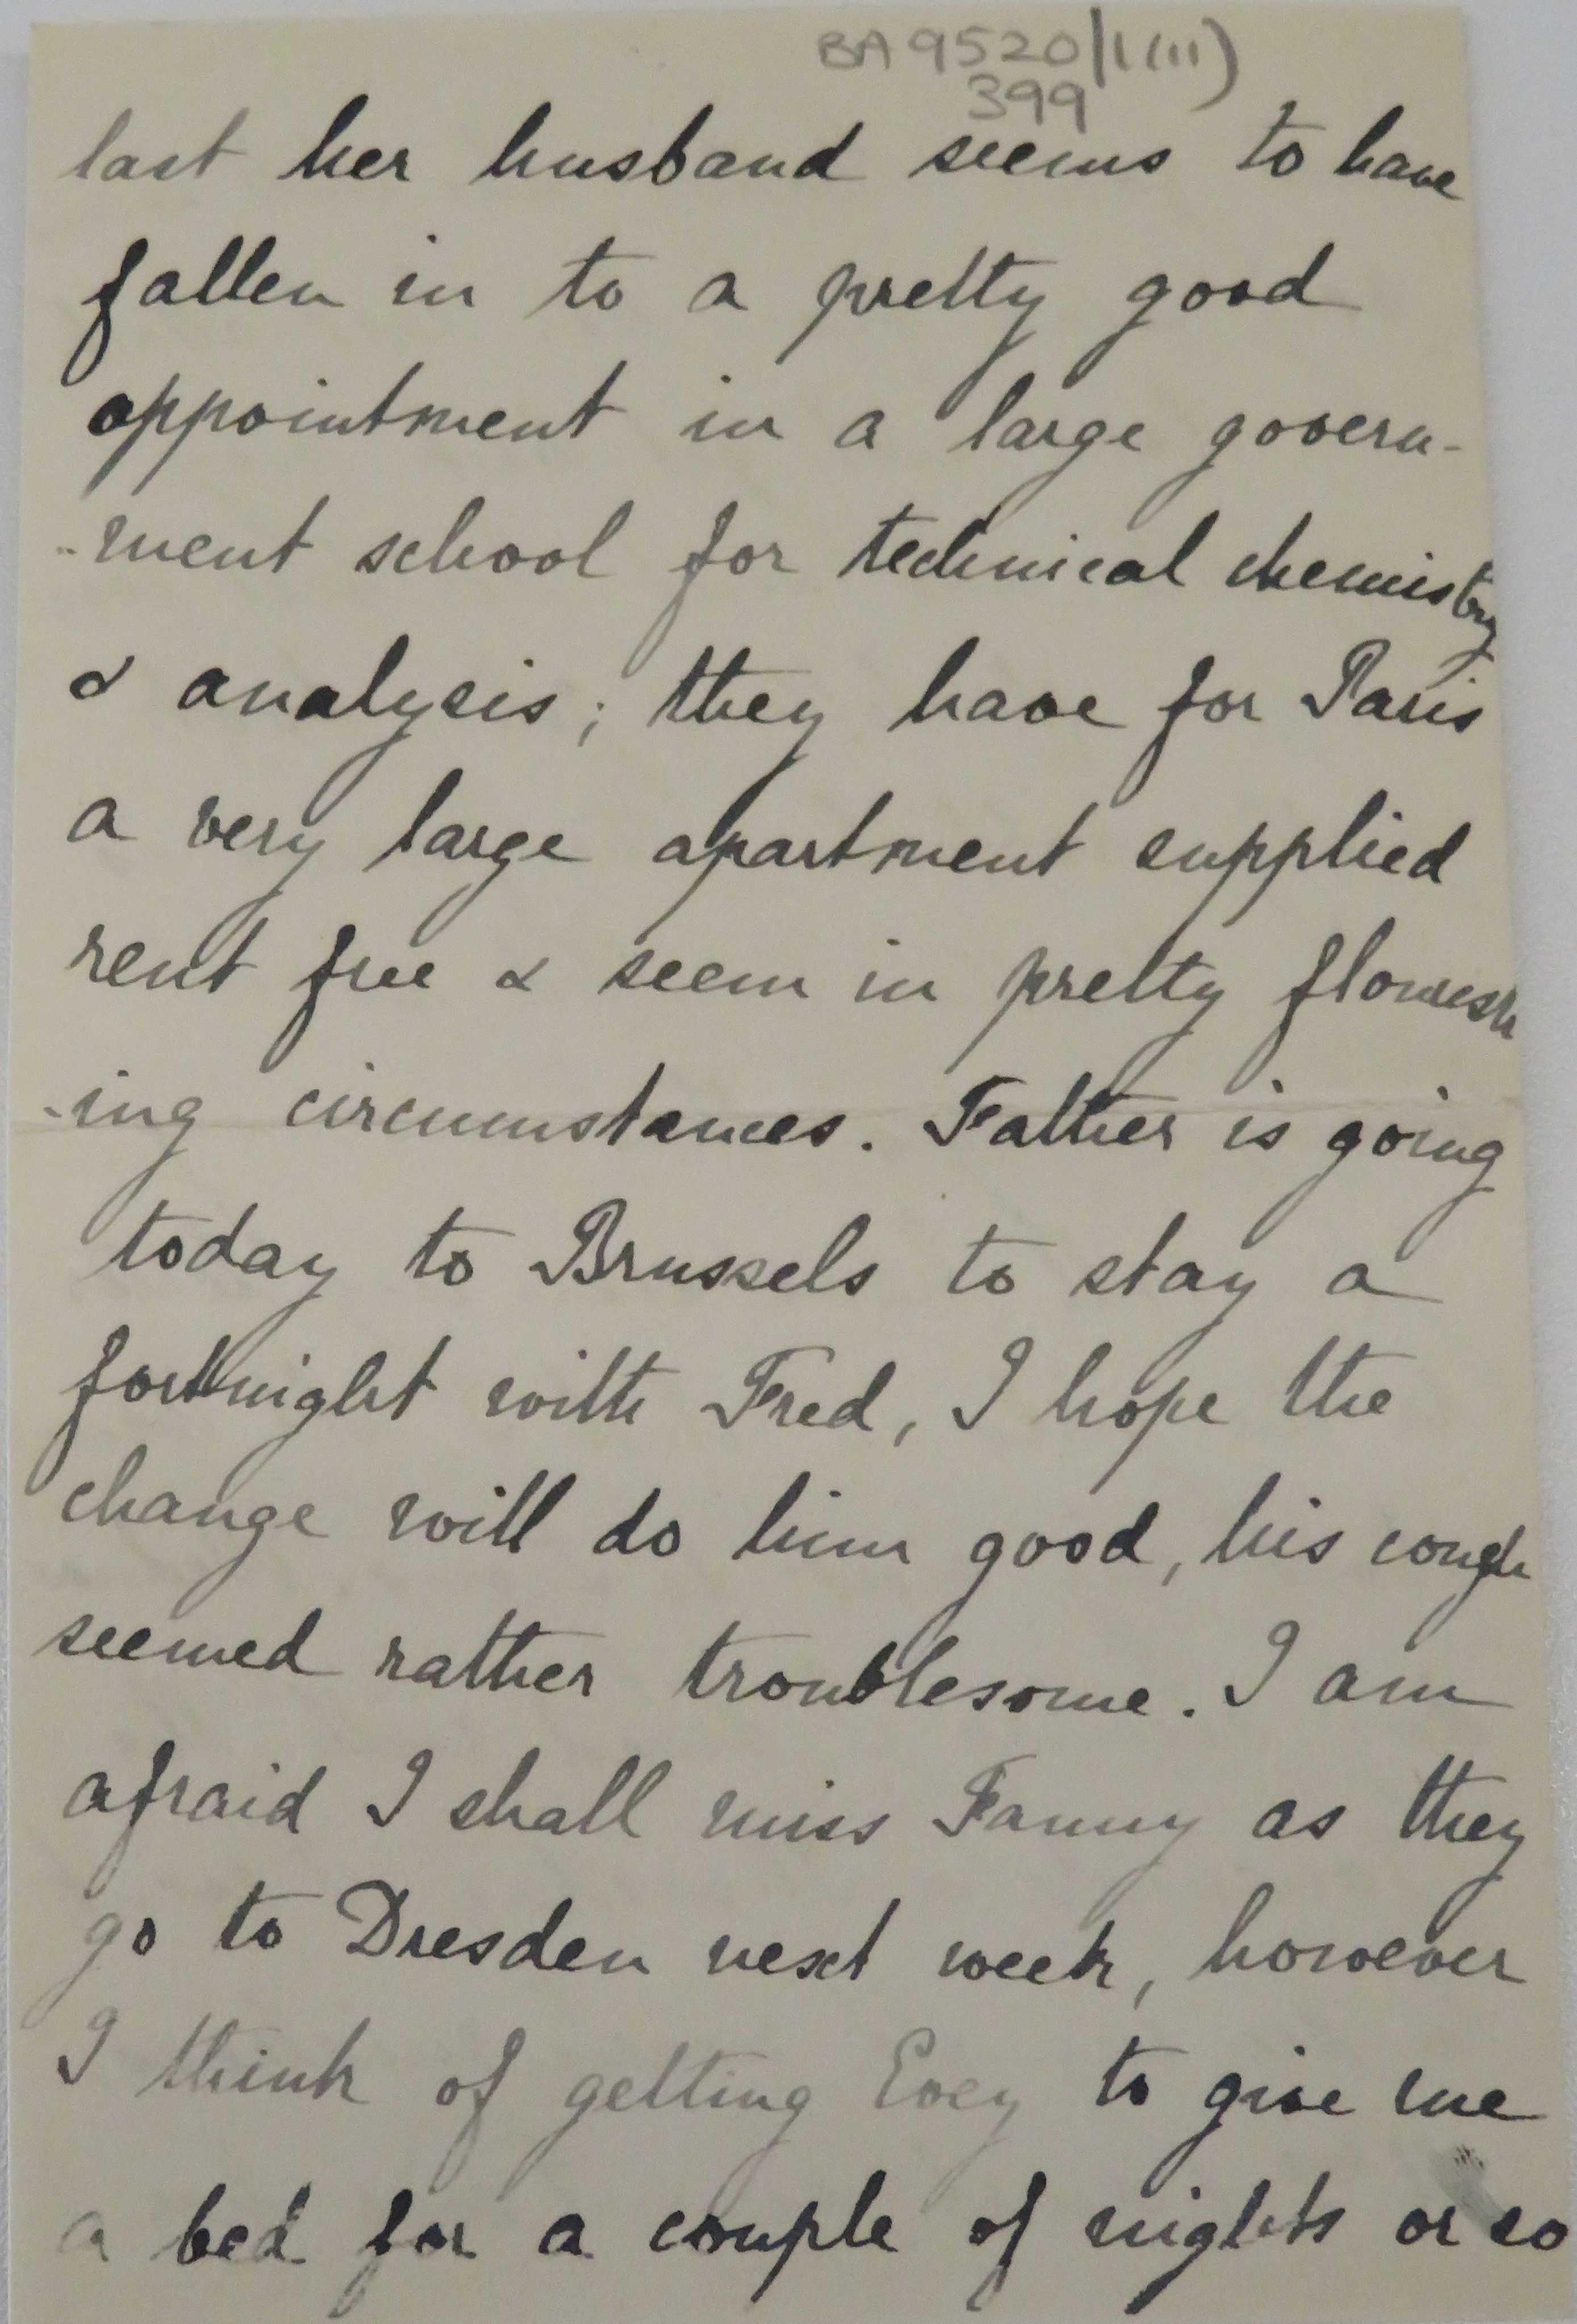 BA 9520/1(iii)
399
last her husband seems to have
fallen in to a pretty good
appointment in a large govern-
-ment school for technical chemistry
& analysis; they have for Paris
a very large apartment supplied
rent free & seem in pretty flourish
-ing circumstances. Father is going
today to Brussels to stay a
fortnight with Fred, I hope the
change will do him good, his cough
seemed rather troublesome. I am
afraid I shall miss Fanny as they
go to Dresden next week, however
I think of getting Evey to give me
a bed for a couple of nights or so